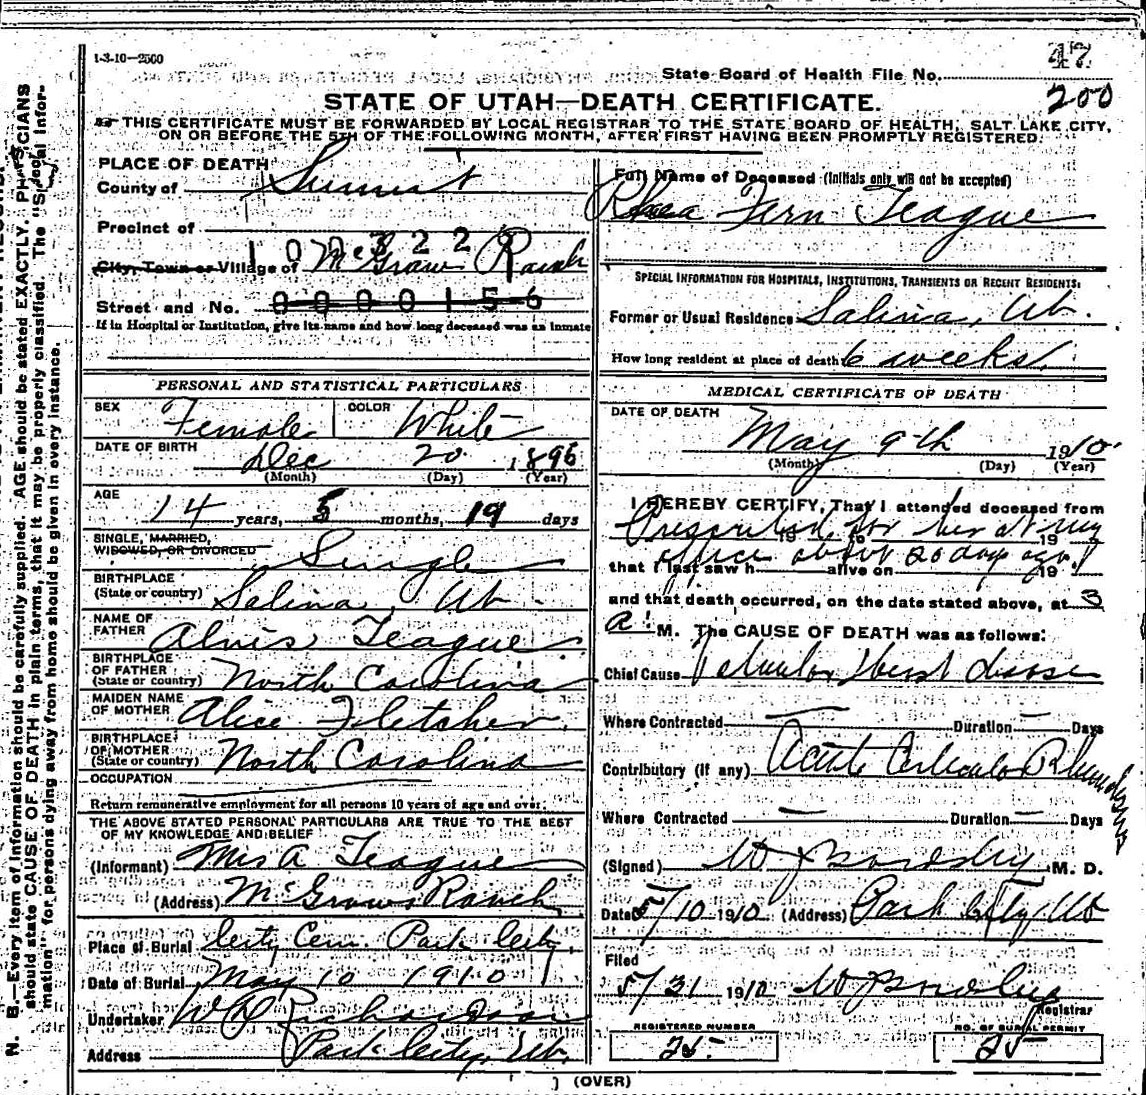 1-3-10—2500
47
State Board of Health File No.
200
STATE OF UTAH—DEATH CERTIFICATE.
THIS CERTIFICATE MUST BE FORWARDED BY LOCAL REGISTRAR TO THE STATE BOARD OF HEALTH, SALT LAKE CITY,
ON OR BEFORE THE 5TH OF THE FOLLOWING MONTH, AFTER FIRST HAVING BEEN PROMPTLY REGISTERED.
PLACE OF DEATH
County of Summit
Precinct of
City, Town or Village of McGraws Ranch
Street and No. 0000156
If in Hospital or Institution, give its name and how long deceased was an inmate
Full Name of Deceased (Initials only will not be accepted)
Rhea Fern Teague
SPECIAL INFORMATION FOR HOSPITALS, INSTITUTIONS, TRANSIENTS OR RECENT RESIDENTS:
Former or Usual Residence Salina, Ut.
How long resident at place of death 6 weeks
PERSONAL AND STATISTICAL PARTICULARS
SEX Female COLOR White
DATE OF BIRTH Dec 20 1896
(Month) (Day) (Year)
AGE
14 years, 5 months, 19 days
SINGLE, MARRIED,
WIDOWED, OR DIVORCED Single
BIRTHPLACE
(State or country) Salina, Ut.
NAME OF
FATHER Alvis Teague
BIRTHPLACE
OF FATHER
(State or country) North Carolina
MAIDEN NAME
OF MOTHER Alice Fletcher
BIRTHPLACE
OF MOTHER
(State or country) North Carolina
OCCUPATION
Return remunerative employment for all persons 10 years of age and over.
THE ABOVE STATED PERSONAL PARTICULARS ARE TRUE TO THE BEST
OF MY KNOWLEDGE AND BELIEF
(Informant) Mrs A Teague
(Address) McGraws Ranch
Place of Burial City Cem Park City,
Date of Burial May 10 1910
Undertaker W Richardson
Address Park City, Ut.
MEDICAL CERTIFICATE OF DEATH
DATE OF DEATH
May 9th 1910
(Month) (Day) (Year)
I HEREBY CERTIFY, That I attended deceased from
Prescribed for her at my
19 to 19
office about 20 days ago
that I last saw h alive on 19
and that death occurred, on the date stated above, at 3
A. M. The CAUSE OF DEATH was as follows:
Chief Cause Valvular Heart disease
Where Contracted Duration Days
Contributory (if any) Acute Articular Rheumatism
Where Contracted Duration Days
(Signed) M. D.
Date 5/10 1910 (Address) Park City, Ut
Filed
5/31 1910
Registrar
REGISTERED NUMBER
25
NO. OF BURIAL PERMIT
25
(OVER)
N. B.—Every item of information should be carefully supplied. AGE should be stated EXACTLY. PHYSICIANS
should state CAUSE OF DEATH in plain terms, that it may be properly classified. The "Special Infor-
mation" for persons dying away from home should be given in every instance.